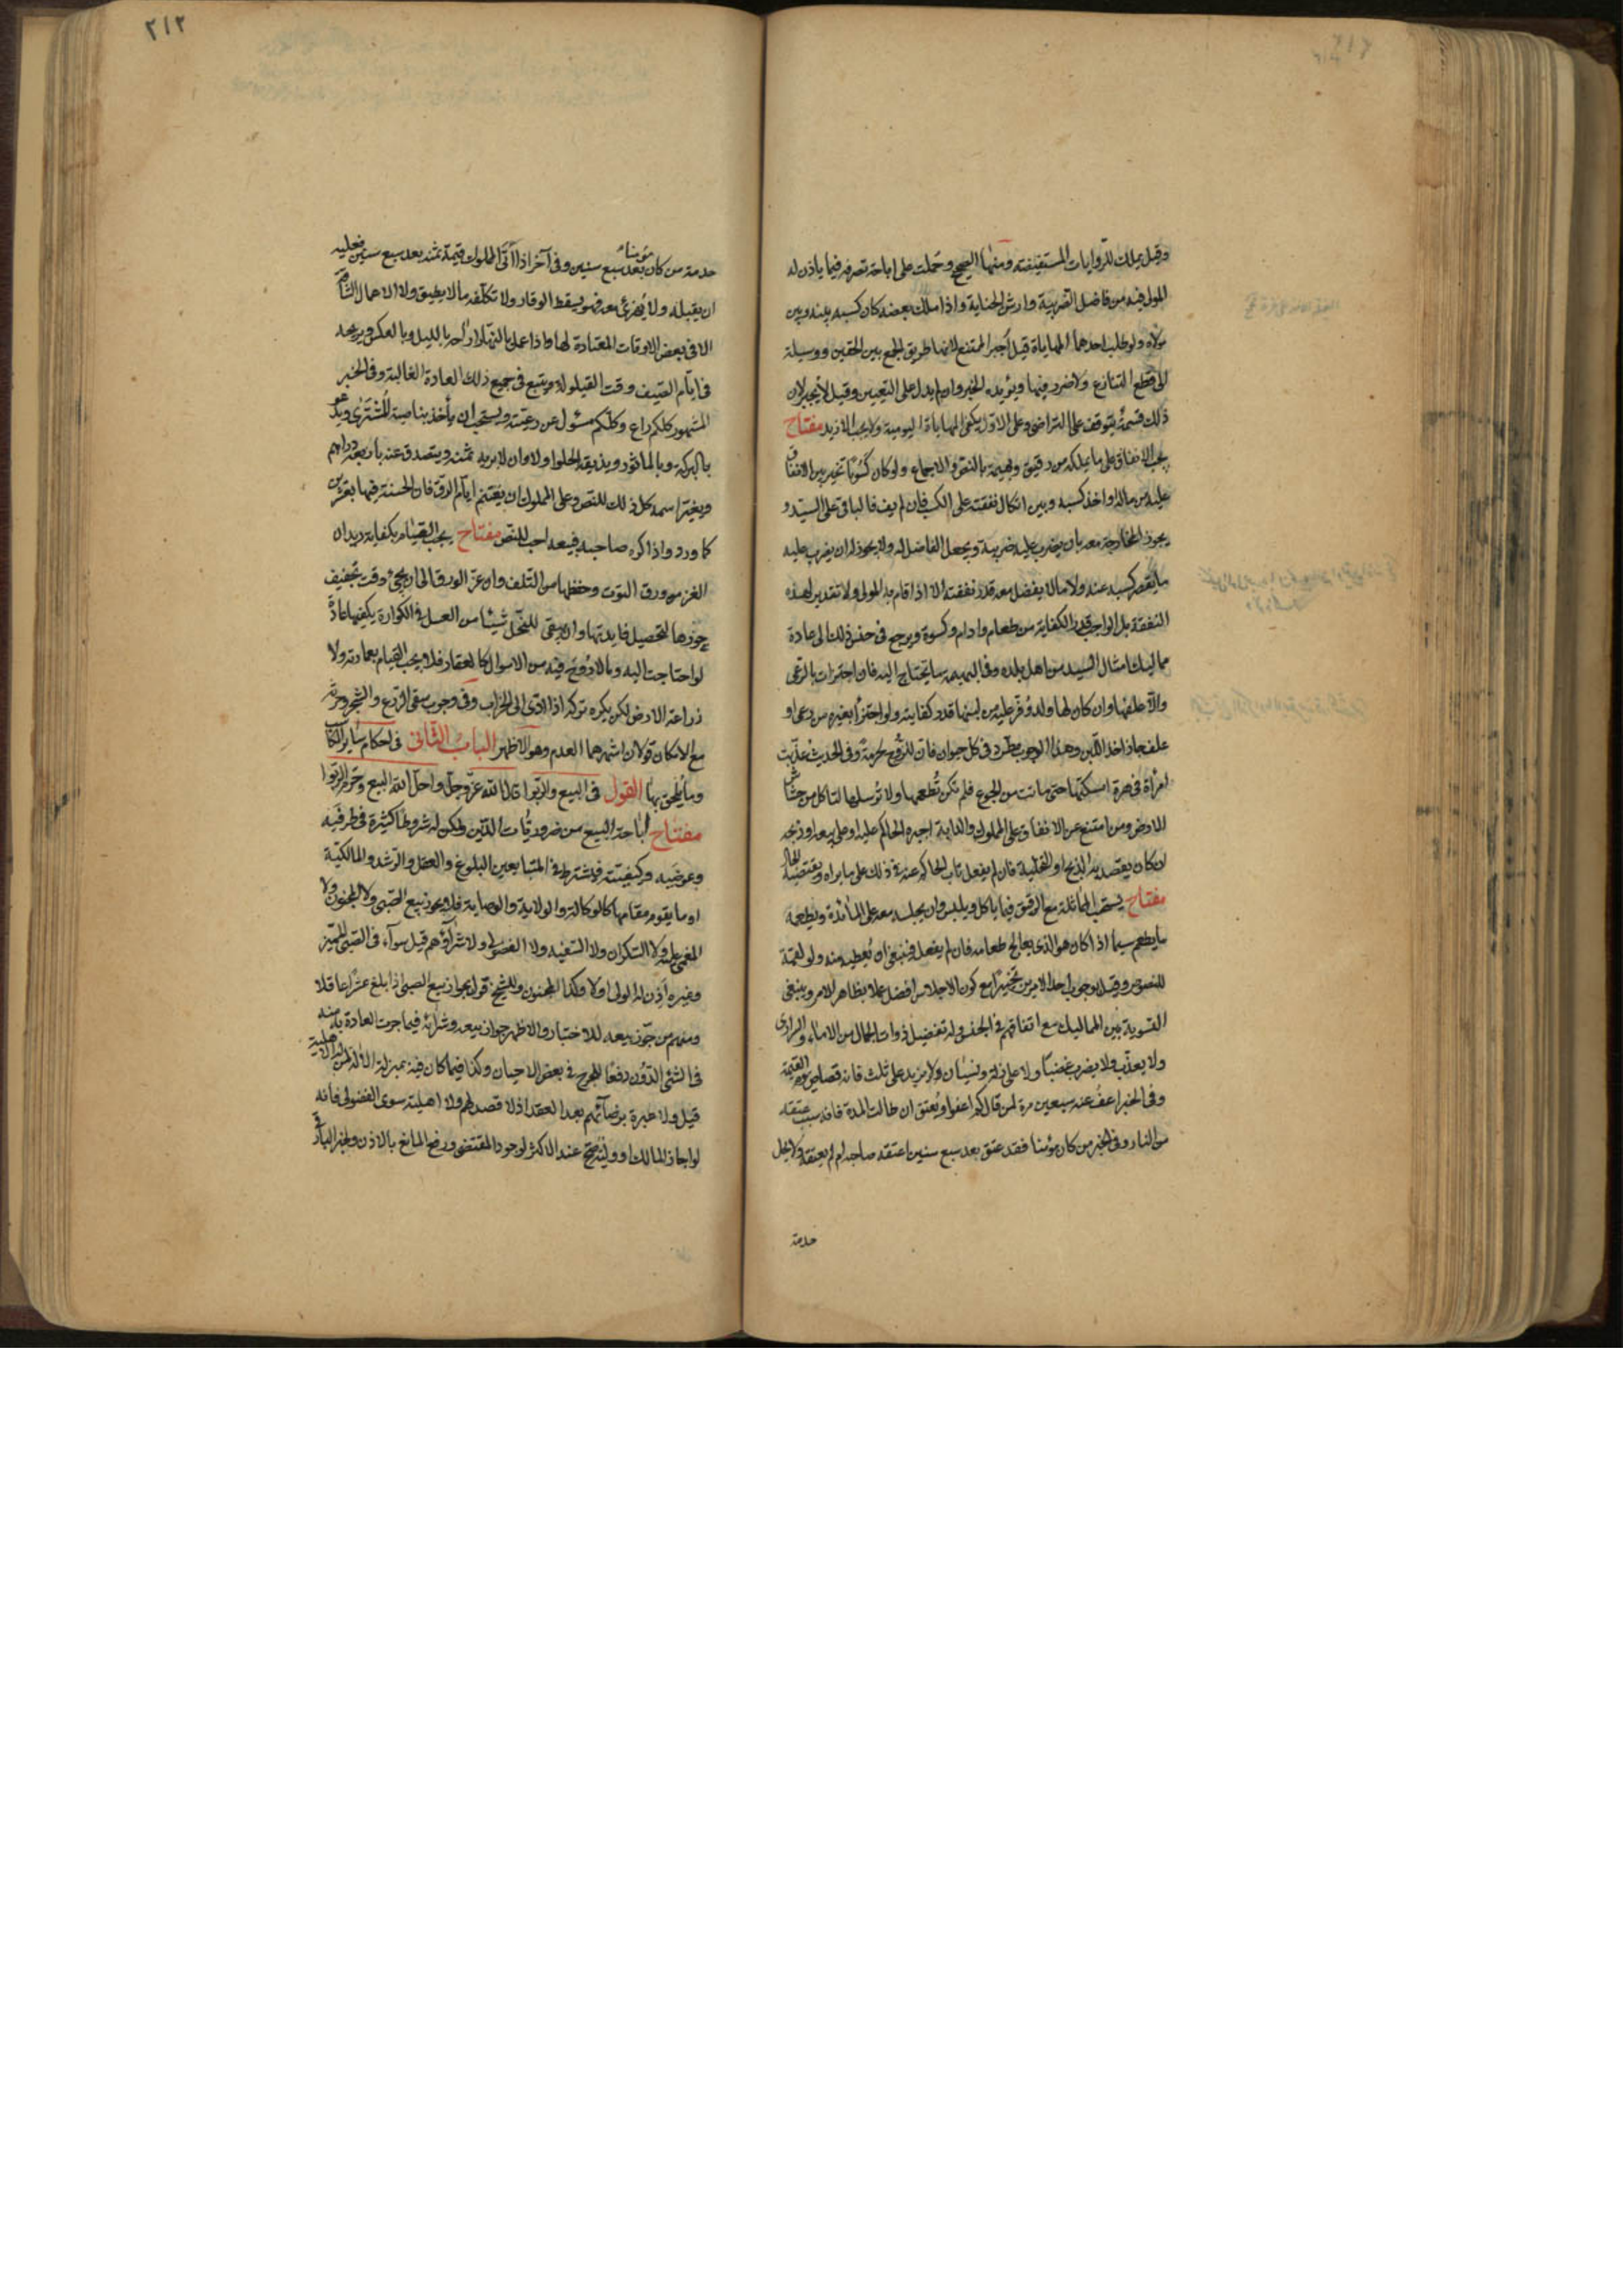 وقيل يملك للروايات المستفيضة ومنها الصحيح وحملت على اباحة تصرفه فيما ياذن له
المولى فيه من فاضل الضريبة وارش الجناية واذا ملك بعضه كان كسبه بينه وبين
مولاه ولو طلب احدهما المهاياة قيل اجبر الممتنع لانها طريق الجمع بين الحقين ووسيلة
الى قطع التنازع ولا ضرر فيها ويؤيده الخبر وان لم يدل على التعيين وقيل لا يجبر لان
ذلك قسمة يتوقف على التراضي وعلى الاول يكفي المهاياة اليومية ولا يجب الازيد مفتاح
يجب الانفاق على ما يملكه من رقيق وبهيمة بالنص والاجماع ولو كان كسوبا تخير بين الانفاق
عليه من ماله واخذ كسبه وبين اتكال نفقته على الكسب فان لم يف فالباقي على السيد و
يجوز المخارجة معه بان يضرب عليه ضريبة ويجعل الفاضل له ولا يجوز له ان يضرب عليه
ما يقصر كسبه عنه ولا ما لا يفضل معه قدر نفقته الا اذا قام به المولى ولا تقدير لهذه
النفقة بل الواجب قدر الكفاية من طعام وادام وكسوة ويرجع في جنس ذلك الى عادة
مماليك امثال السيد من اهل بلده وفي البهيمة ما يحتاج اليه فان اجتزات بالرعي
والا علفها وان كان لها ولد وفر عليه من لبنها قدر كفايته ولو اجتزأ بغيره من رعى او
علف جاز اخذ اللبن وهذا الوجوب مطرد في كل حيوان فان للروح لحرمة وفي الحديث عذبت
امرأة في هرة امسكتها حتى ماتت من الجوع فلم تكن تطعمها ولا ترسلها لتاكل من خشاش
الارض ومن امتنع عن الانفاق على المملوك والدابة اجبره الحاكم عليه او على بيعه او ذبحه
ان كان يقصد به الذبح او التخلية فان لم يفعل ناب الحاكم عنه في ذلك على ما يراه ويقتضيه الحال
مفتاح يستحب المماثلة مع الرقيق فيما ياكل ويلبس وان يجلسه معه على المائدة ويطعمه
ما يطعم سيما اذا كان هو الذي يعالج طعامه فان لم يفعل فينبغي ان يعطيه منه ولو لقمة
للنصوص وقيل بوجوب احد الامرين تخييرا مع كون الاجلاس افضل عملا بظاهر الامر وينبغي
التسوية بين المماليك مع اتفاقهم في الجنس وله تفضيل ذوات الجمال من الاماء والسراري
ولا يعذب ولا يضرب غضبا ولا على زلة ونسيان ولا يزيد على ثلث فانه قصاص يوم القيمة
وفي الخبر اعف عنه سبعين مرة لمن قال كم اعفو ويعتق ان طالت المدة فانه سبب عتقه
من النار وفي الخبر من كان مؤمنا فقد عتق بعد سبع سنين اعتقه صاحبه ام لم يعتقه ولا يحل
خدمة
٢١٢
خدمة من كان مؤمنا بعد سبع سنين وفي آخر اذا اتى المملوك قيمة ثمنه بعد سبع سنين فعليه
ان يقبله ولا يهزئ معه فهو يسقط الوقار ولا تكلفه ما لا يطيق ولا الاعمال الشاقة
الا في بعض الاوقات المعتادة لها واذا عمل بالنهار اراحه بالليل وبالعكس ويريحه
في ايام الصيف وقت القيلولة ويتبع في جميع ذلك العادة الغالبة وفي الخبر
المشهور كلكم راع وكلكم مسئول عن رعيته ويستحب ان يأخذ بناصية المشترى ويدعو
بالبركة وبالماثور ويذيقه الحلوا اولا وان لا يريه ثمنه ويتصدق عنه باربعة دراهم
ويغير اسمه كل ذلك للنص وعلى المملوك ان يغتنم ايام الرق فان الحسنة فيها بعشرين
كما ورد واذا كره صاحبه فبيعه احب للنص مفتاح يجب القيام بكفاية ديدان
القز من ورق التوت وحفظها من التلف وان عز الورق الى ان يجئ وقت تجفيف
جوزها لتحصيل فايدتها وان يبقى للنحل شيئا من العسل في الكوارة يكفيها عادة
لو احتاجت اليه وما لا روح فيه من الاموال كالعقار فلا يجب القيام بعمارته ولا
زراعة الارض لكن يكره تركه اذا ادى الى الخراب وفي وجوب سقى الزرع والشجر وحرثه
مع الامكان قولان اشهرهما العدم وهو الاظهر الباب الثاني في احكام ساير المكاسب
وما يلحق بها القول في البيع والربوا قال الله عز وجل واحل الله البيع وحرم الربوا
مفتاح اباحة البيع من ضروريات الدين ولكن له شروط كثيرة في طرفيه
وعوضيه وكيفيته فيشترط في المتبايعين البلوغ والعقل والرشد والمالكية
او ما يقوم مقامها كالوكالة والولاية والوصاية فلا يجوز بيع الصبي ولا المجنون ولا
المغمى عليه ولا السكران ولا السفيه ولا الفضولي ولا شراؤهم قيل سواء في الصبي المميز
وغيره اذن له الولى او لا وكذا المجنون وللشيخ قول بجواز بيع الصبي اذا بلغ عشرا عاقلا
ومنهم من جوز بيعه للاختبار والاظهر جواز بيعه وشرائه فيما جرت العادة به منه
في الشئ الدون دفعا للحرج في بعض الاحيان وكذا فيما كان فيه بمنزلة الالة لمن له الاهلية
قيل ولا عبرة برضائهم بعد العقد اذ لا قصد لهم ولا اهلية سوى الفضولى فانه
لو اجاز المالك او وليه صح عند الاكثر لوجود المقتضى ورفع المانع بالاذن ولخبر البارقي